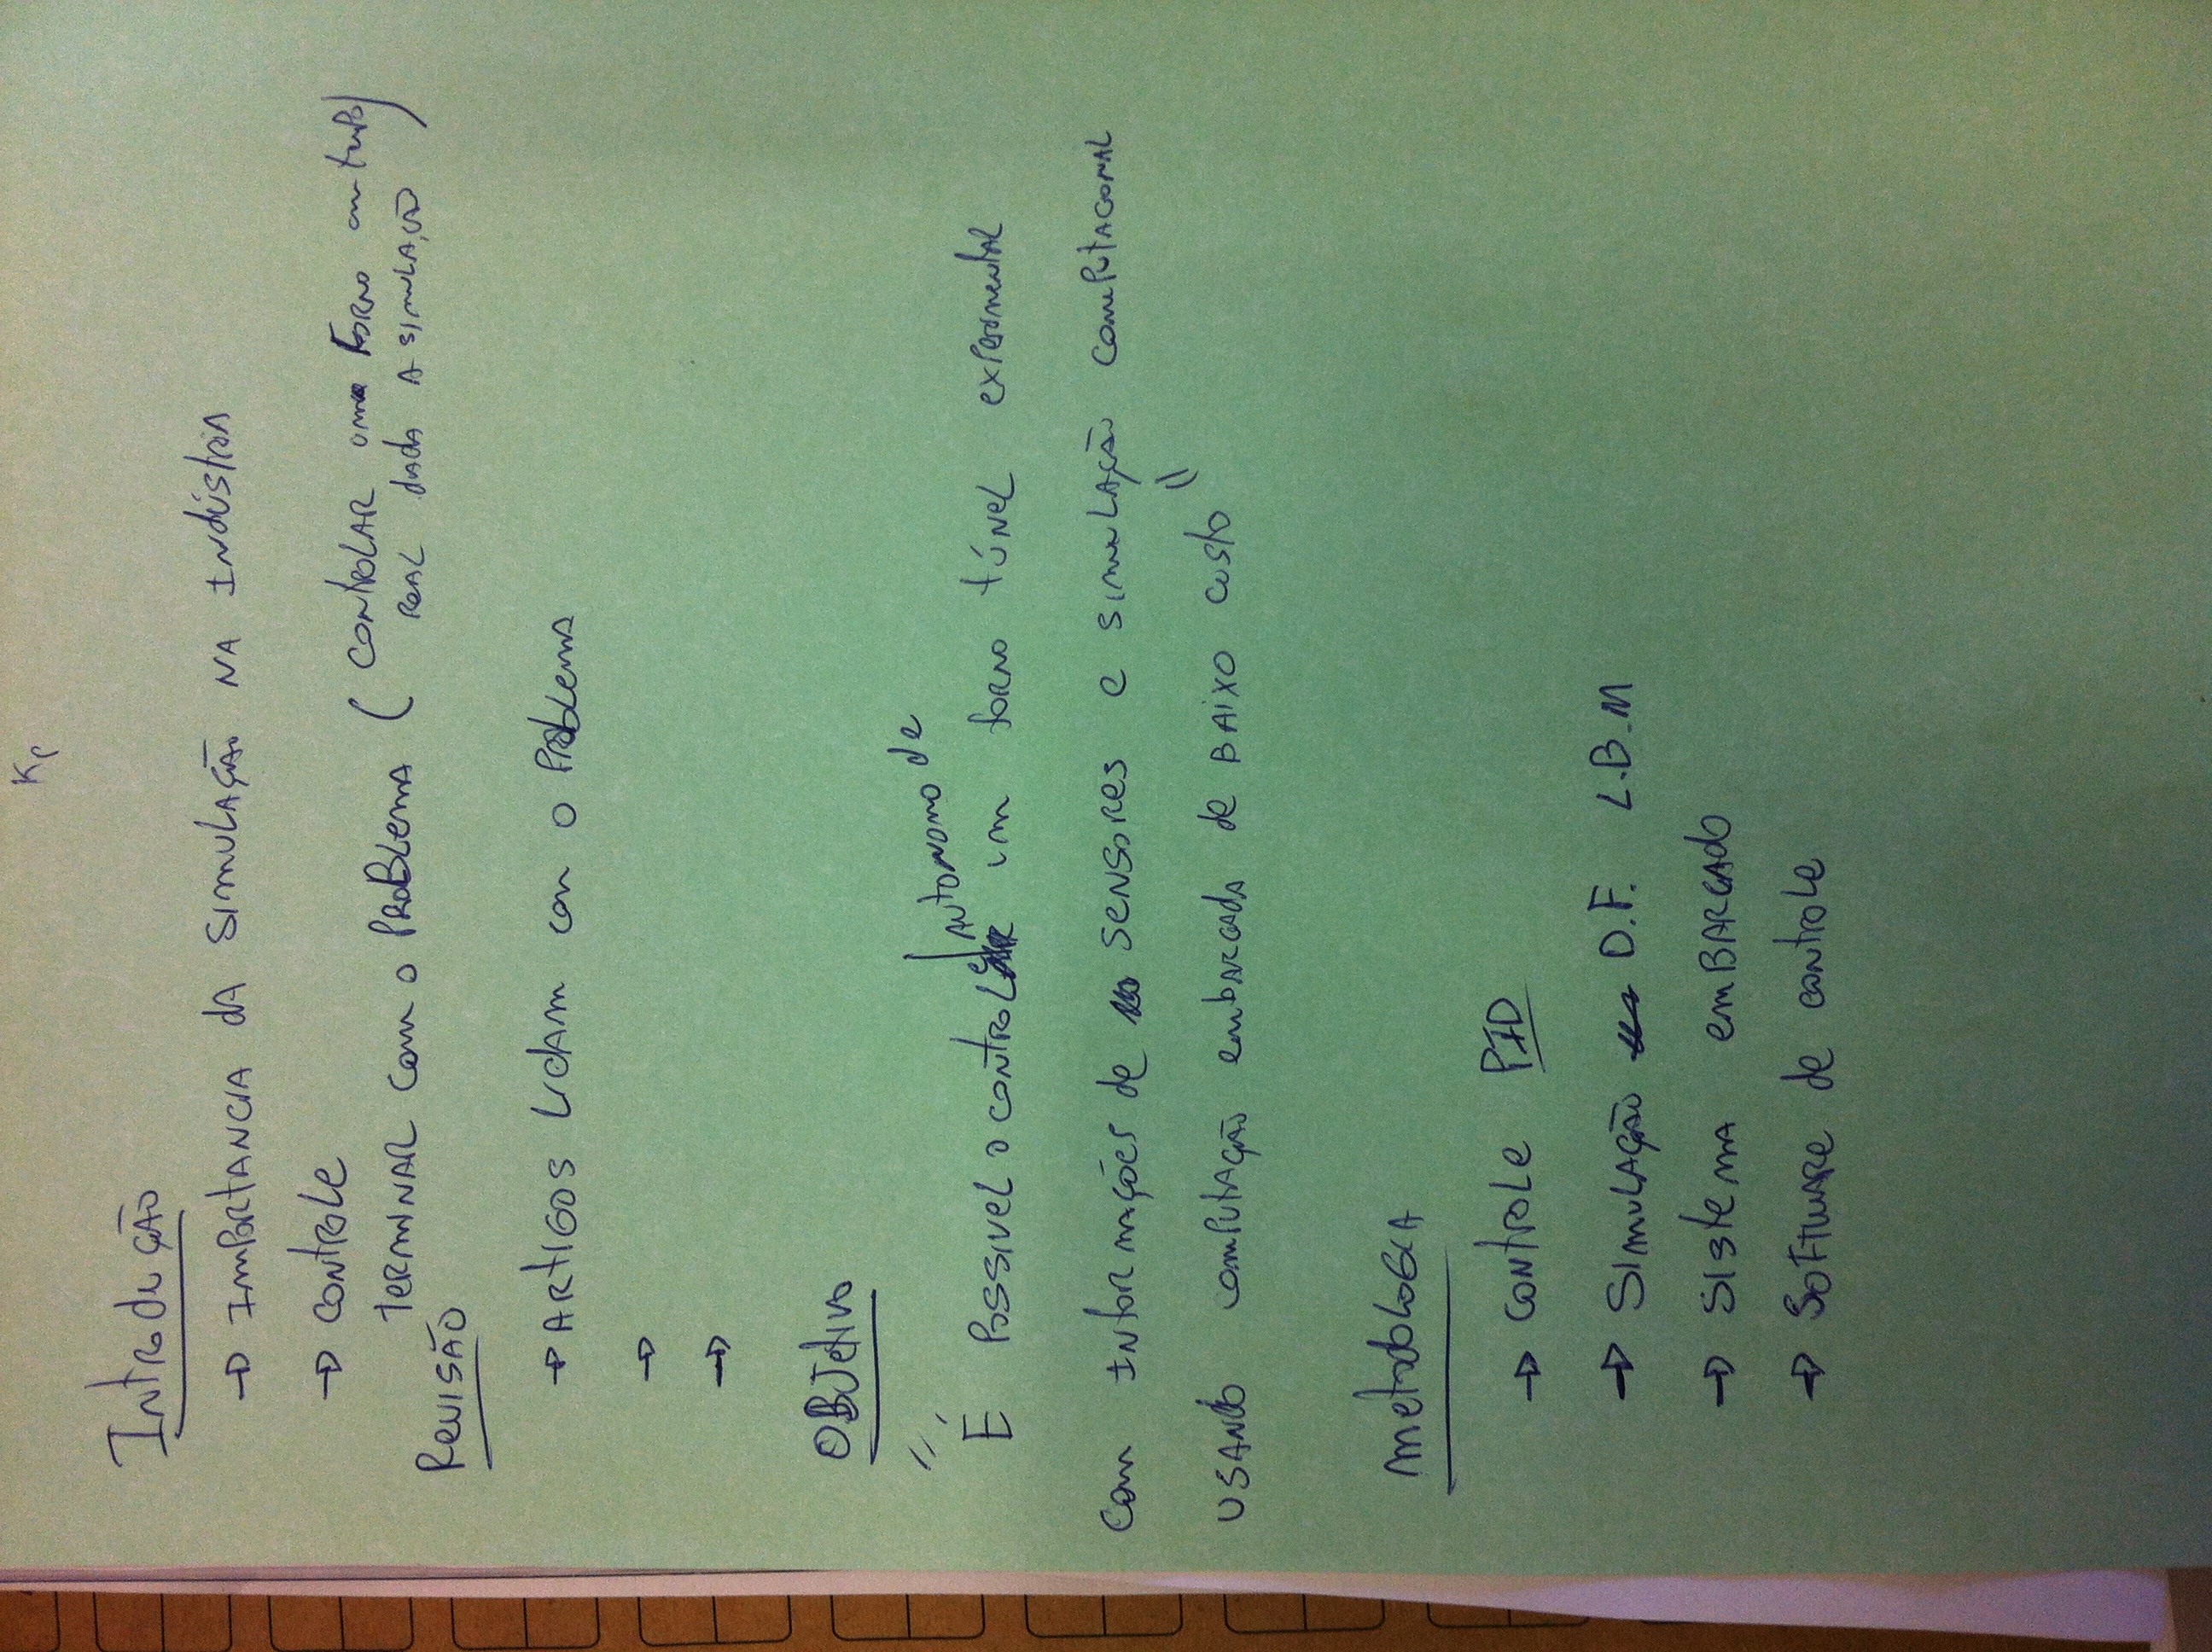 Kp
Introdução
→ Importancia da simulação na Indústria
→ controle
terminar com o problema ( controlar um forno em tempo
real dada a simulação )
Revisão
→ Artigos lidam com o problema
→
→
Objetivo
autonomo de
" É possivel o controle um forno túnel experimental
com informações de sensores e simulação computacional
usando computação embarcada de baixo custo "
metodologia
→ controle PID
→ simulação D.F. L.B.M
→ sistema embarcado
→ software de controle